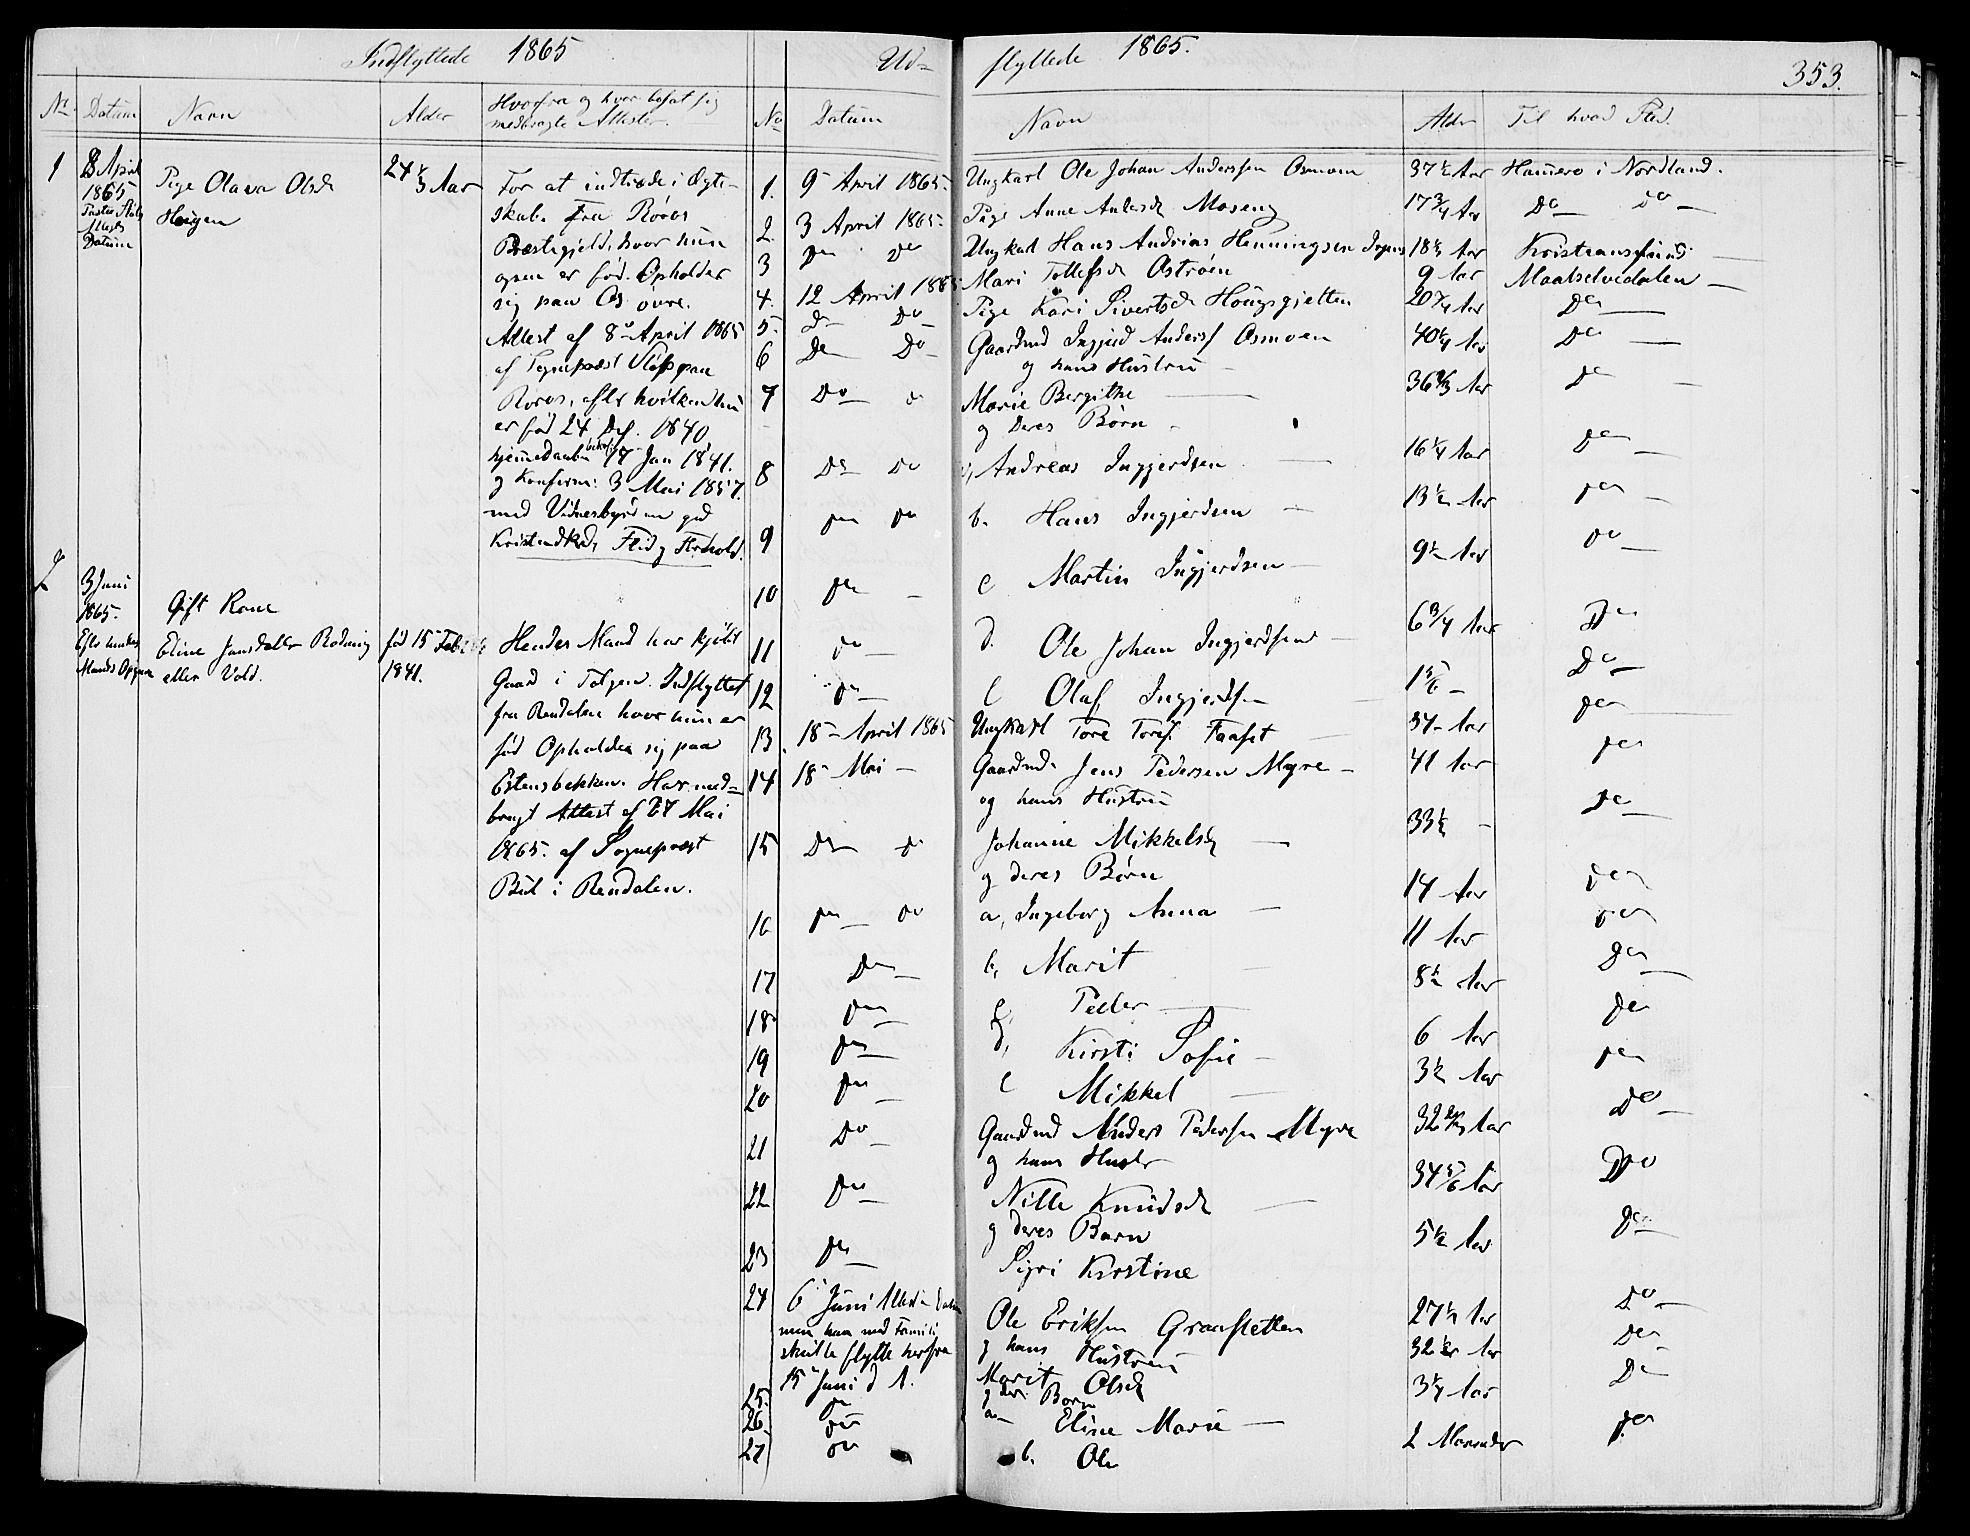 Indflyttede 1865
No. Datum Navn Alder Hvorfra og hvor bosat sig
medbragte Attester.
1 8 April 1865 Pige Olava Olsd. 24 1/3 Aar For at indtræde i Ægte-
Attests Datum Haugen skab. Fra Røros
Præstegjeld, hvor hun
ogsaa er fød. Opholder
sig paa Os øvre.
Attest af 8de April 1865
af Sognepræst paa
Røros, efter hvilken hun
er fød 24 Dec. 1840
hjemmedøbt 17 Jan 1841.
og Konfirm: 3 Mai 1857.
med Vidnesbyrd om god
Kristendksk, Flid og Forhold.
2 3 Juni
1865. Gift Kone
Efter hendes Eline Jonsdatter Rodning fød 15 Feb. Hendes Mand har kjøbt
Mands Opgave eller Vold. 1841. Gaard i Tolgen. Indflyttet
fra Rendalen hvor hun er
fød Opholder sig paa
Estensbekken. Har med-
bragt Attest af 27 Mai
1865. af Sognepræst
Bul i Rendalen.
Ud- flyttede 1865. 353.
No Datum Navn Alder Til hvad Sted.
1. 9 April 1865. Ungkarl Ole Johan Anderssen Osmoen 37 1/2 Aar Hamerø i Nordland.
2. 3 April 1865. Pige Anne Andersd. Moseng 17 3/4 Aar Do Do
3 Do Do Ungkarl Hans Andrias Henningsen 18 1/2 Aar Kristiansund
4. 12 April 1865 Mari Tollefsd. Østrøen 9 Aar Maalselvedalen
5. Do Do Pige Kari Sivertsd. Hougsgjelten 20 3/4 Aar Do
6 Do Do Gaardmd Ingjerd Anders. Osmoen 40 1/4 Aar Do
og hans Hustru
7 Do Do Marie Bergithe 36 2/3 Aar Do
og deres Børn
8 Do Do a, Andreas Ingjerdsen 16 1/4 Aar Do
9 Do Do b. Hans Ingjerdsen 13 1/2 Aar Do
10 Do c Martin Ingjerdsen 9 1/2 Aar Do
11 Do d. Ole Johan Ingjerdsen 6 3/4 Aar Do
12 Do e Olaf Ingjerdsen 1 5/6 Do
13. 18 April 1865 Ungkarl Tore Tores. Faaset 37 Aar Do
14 18 Mai Gaardmd. Jens Pedersen Myre 41 Aar Do
og hans Hustru
15 Do Do Johanne Mikkelsd. 33 1/2 Do
og deres Børn
16 Do Do a, Ingeborg Anna 14 Aar Do
17 Do b, Marit 11 Aar Do
18 Do c, Peder 8 1/2 Aar Do
19 Do d, Kirsti Sofie 6 Aar Do
20 Do e Mikkel 3 1/2 Aar Do
21 Do Gaardmd Anders Pedersen Myre 32 Aar Do
og hans Hustr
22 Do Nille Knudsd. 34 5/6 Aar Do
og deres Barn
23 Do Sigri Kirstine 5 1/2 Aar Do
24 6 Juni Attest Datum Ole Eriksen Graasletten 27 1/2 Aar Do
men han med Familie og hans Hustru 32 1/2 Aar Do
skulde flytte herfra
15 Juni d A. Marit Olsd.
25. Do og deres Børn
26 Do a Eline Marie 3 1/4 Aar Do
27 Do b. Ole 2 Maaneder Do